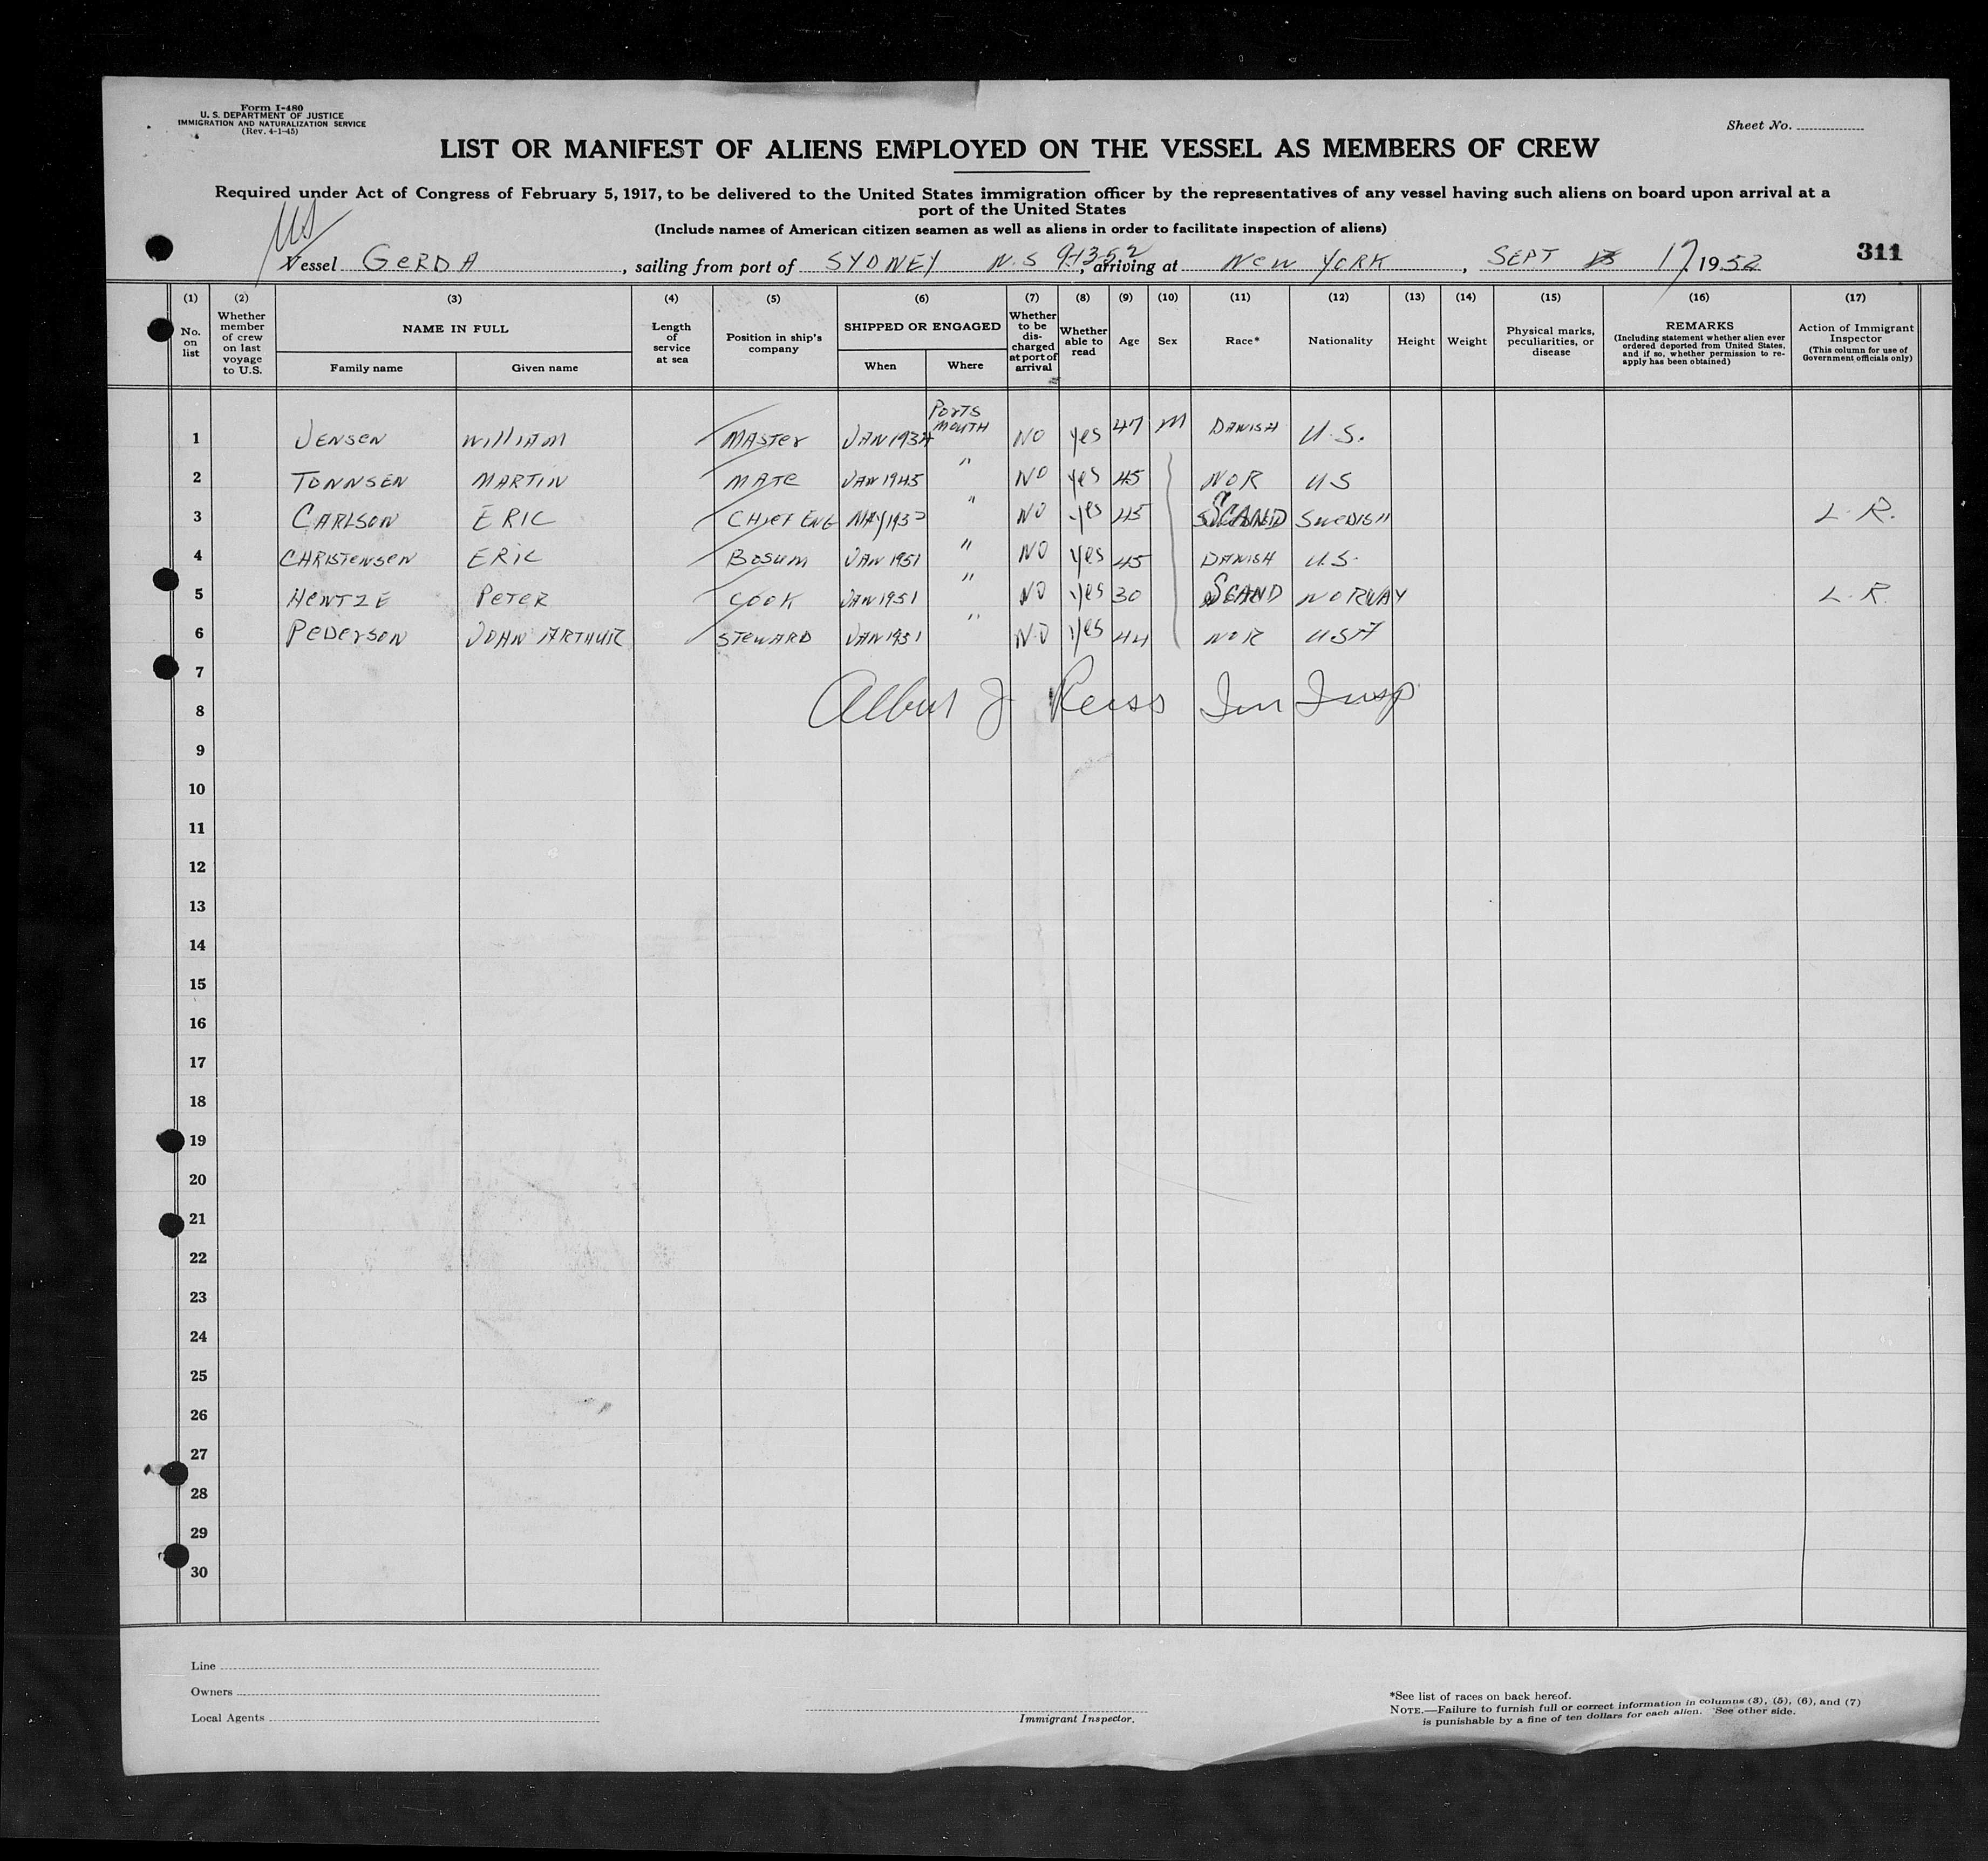 Form I-480
U. S. DEPARTMENT OF JUSTICE
IMMIGRATION AND NATURALIZATION SERVICE
(Rev. 4-1-45)
Sheet No.
LIST OR MANIFEST OF ALIENS EMPLOYED ON THE VESSEL AS MEMBERS OF CREW
Required under Act of Congress of February 5, 1917, to be delivered to the United States immigration officer by the representatives of any vessel having such aliens on board upon arrival at a
port of the United States
(Include names of American citizen seamen as well as aliens in order to facilitate inspection of aliens)
US
Vessel GERDA, sailing from port of SYDNEY N.S 9-13-52, arriving at NEW YORK, SEPT 17, 1952 311
(1) (2) (3) (4) (5) (6) (7) (8) (9) (10) (11) (12) (13) (14) (15) (16) (17)
No. on list
Whether member of crew on last voyage to U.S.
NAME IN FULL
Family name Given name
Length of service at sea
Position in ship's company
SHIPPED OR ENGAGED
When Where
Whether to be discharged at port of arrival
Whether able to read
Age
Sex
Race*
Nationality
Height
Weight
Physical marks, peculiarities, or disease
REMARKS
(Including statement whether alien ever ordered deported from United States, and if so, whether permission to re-apply has been obtained)
Action of Immigrant Inspector
(This column for use of Government officials only)
1 JENSEN WILLIAM MASTER JAN 1934 PORTS MOUTH NO yes 47 M DANISH U.S.
2 TONNSEN MARTIN MATE JAN 1945 " NO yes 45 NOR US
3 CARLSON ERIC CHIEF ENG MAY " NO yes 45 SCAND SWEDISH L.R.
4 CHRISTENSEN ERIC BOSUM JAN 1951 " NO yes 45 DANISH U.S.
5 HENTZE PETER COOK JAN 1951 " NO yes 30 SCAND NORWAY L.R.
6 PEDERSON JOHN ARTHUR STEWARD JAN 1951 " NO yes 44 NOR USA
7
Albert J Reiss Im Insp
8
9
10
11
12
13
14
15
16
17
18
19
20
21
22
23
24
25
26
27
28
29
30
Line
Owners
Local Agents
Immigrant Inspector.
*See list of races on back hereof.
NOTE.—Failure to furnish full or correct information in columns (3), (5), (6), and (7)
is punishable by a fine of ten dollars for each alien. See other side.